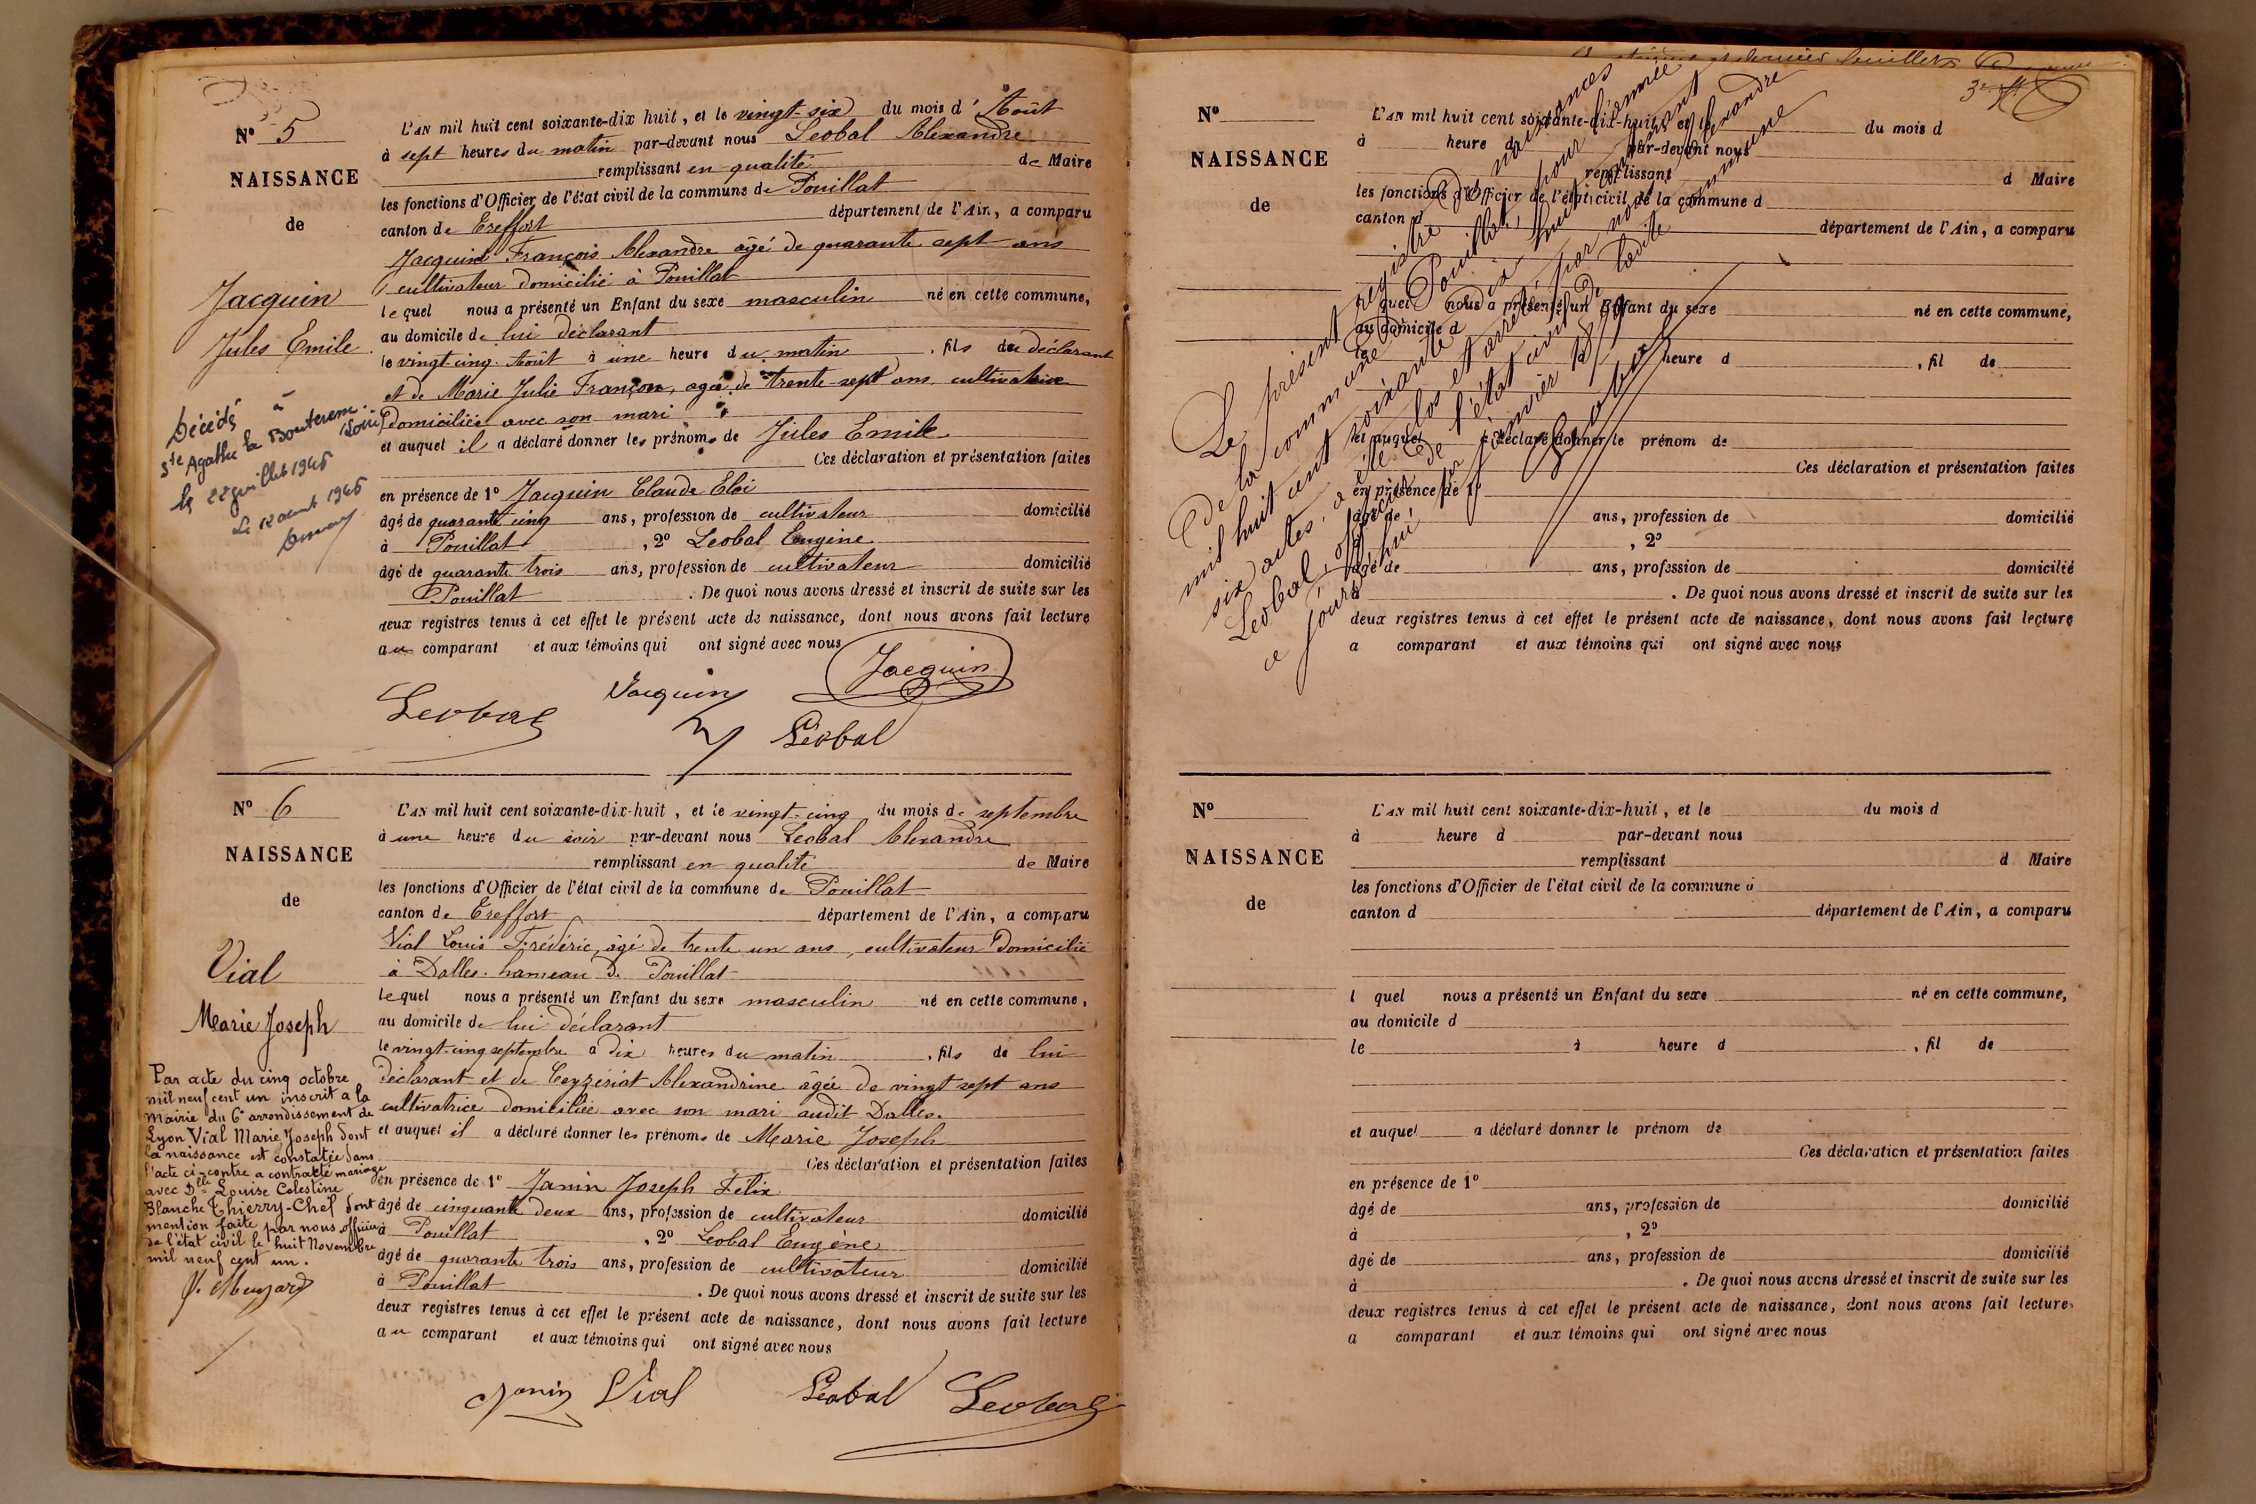 N° 5
NAISSANCE
de
Jacquin
Jules Emile
Décédé à
Ste Agathe la Bouteresse
(Loire)
le 22 juillet 1945
Le 12 août 1945
L'AN mil huit cent soixante-dix huit, et le vingt-six du mois d'Août
à sept heures du matin par-devant nous Leobal Alexandre
remplissant en qualité de Maire
les fonctions d'Officier de l'état civil de la commune de Pouillat
canton de Treffort département de l'Ain, a comparu
Jacquin François Alexandre âgé de quarante sept ans
cultivateur domicilié à Pouillat
lequel nous a présenté un Enfant du sexe masculin né en cette commune,
au domicile de lui déclarant
le vingt-cinq Août à une heure du matin, fils du déclarant
et de Marie Julie Françon, agée de trente-sept ans, cultivatrice
domiciliée avec son mari
et auquel il a déclaré donner les prénoms de Jules Emile
Ces déclaration et présentation faites
en présence de 1° Jacquin Claude Eloi
âgé de quarante cinq ans, profession de cultivateur domicilié
à Pouillat, 2° Leobal Eugène
âgé de quarante trois ans, profession de cultivateur domicilié
Pouillat. De quoi nous avons dressé et inscrit de suite sur les
deux registres tenus à cet effet le présent acte de naissance, dont nous avons fait lecture
au comparant et aux témoins qui ont signé avec nous
Jacquin
Jacquin
Leobal
Léobal
N° 6
NAISSANCE
de
Vial
Marie Joseph
Par acte du cinq octobre
mil neuf cent un inscrit à la
Mairie du 6e arrondissement de
Lyon Vial Marie Joseph dont
la naissance est constatée dans
l'acte ci-contre a contracté mariage
avec Dlle Louise Celestine
Blanche Thierry-Chef dont
mention faite par nous officier
de l'état civil le huit Novembre
mil neuf cent un.
L'AN mil huit cent soixante-dix-huit, et le vingt-cinq du mois de septembre
à une heure du soir par-devant nous Leobal Alexandre
remplissant en qualité de Maire
les fonctions d'Officier de l'état civil de la commune de Pouillat
canton de Treffort département de l'Ain, a comparu
Vial Louis Frédéric, âgé de trente un ans, cultivateur domicilié
à Dalles hameau de Pouillat
lequel nous a présenté un Enfant du sexe masculin né en cette commune,
au domicile de lui déclarant
le vingt-cinq septembre à dix heures du matin, fils de lui
déclarant et de Ceyzériat Alexandrine âgée de vingt sept ans
cultivatrice domiciliée avec son mari audit Dalles.
et auquel il a déclaré donner les prénoms de Marie Joseph
Ces déclaration et présentation faites
en présence de 1° Janin Joseph Félix
âgé de cinquante deux ans, profession de cultivateur domicilié
à Pouillat, 2° Leobal Eugène
âgé de quarante trois ans, profession de cultivateur domicilié
à Pouillat. De quoi nous avons dressé et inscrit de suite sur les
deux registres tenus à cet effet le présent acte de naissance, dont nous avons fait lecture
au comparant et aux témoins qui ont signé avec nous
Janin Vial Léobal Leobal
et dernier feuillet
N°
NAISSANCE
de
L'AN mil huit cent soixante-dix-huit, et le du mois d
à heure d par-devant nous
remplissant d Maire
les fonctions d'Officier de l'état civil de la commune d
canton d département de l'Ain, a comparu
l quel nous a présenté un Enfant du sexe né en cette commune,
au domicile d
heure d, fil de
et auquel a déclaré donner le prénom de
Ces déclaration et présentation faites
en présence de 1°
âgé de ans, profession de domicilié
, 2°
âgé de ans, profession de domicilié
à . De quoi nous avons dressé et inscrit de suite sur les
deux registres tenus à cet effet le présent acte de naissance, dont nous avons fait lecture
a comparant et aux témoins qui ont signé avec nous
Le présent registre des naissances
de la commune de Pouillat, pour l'année
mil huit cent soixante dix huit contenant
six actes, a été clos et arrêté par nous Alexandre
Leobal, officier de l'état civil de ladite commune
ce jourd'hui janvier
Leobal
N°
NAISSANCE
de
L'AN mil huit cent soixante-dix-huit, et le du mois d
à heure d par-devant nous
remplissant d Maire
les fonctions d'Officier de l'état civil de la commune d
canton d département de l'Ain, a comparu
l quel nous a présenté un Enfant du sexe né en cette commune,
au domicile d
le à heure d, fil de
et auquel a déclaré donner le prénom de
Ces déclaration et présentation faites
en présence de 1°
âgé de ans, profession de domicilié
à , 2°
âgé de ans, profession de domicilié
à . De quoi nous avons dressé et inscrit de suite sur les
deux registres tenus à cet effet le présent acte de naissance, dont nous avons fait lecture
a comparant et aux témoins qui ont signé avec nous